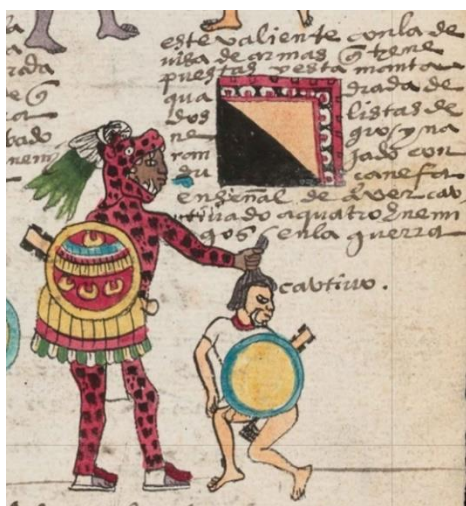 este valiente con la de
uisa de armas q̃ tiene
puestas y esta manta
rada qua drada de
dos listas de
bado ne gro y na
nemi ran jado con
su canefa
en señal de aver cav
tiuado a quatro enemi
gos en la guerra
cavtiuo.